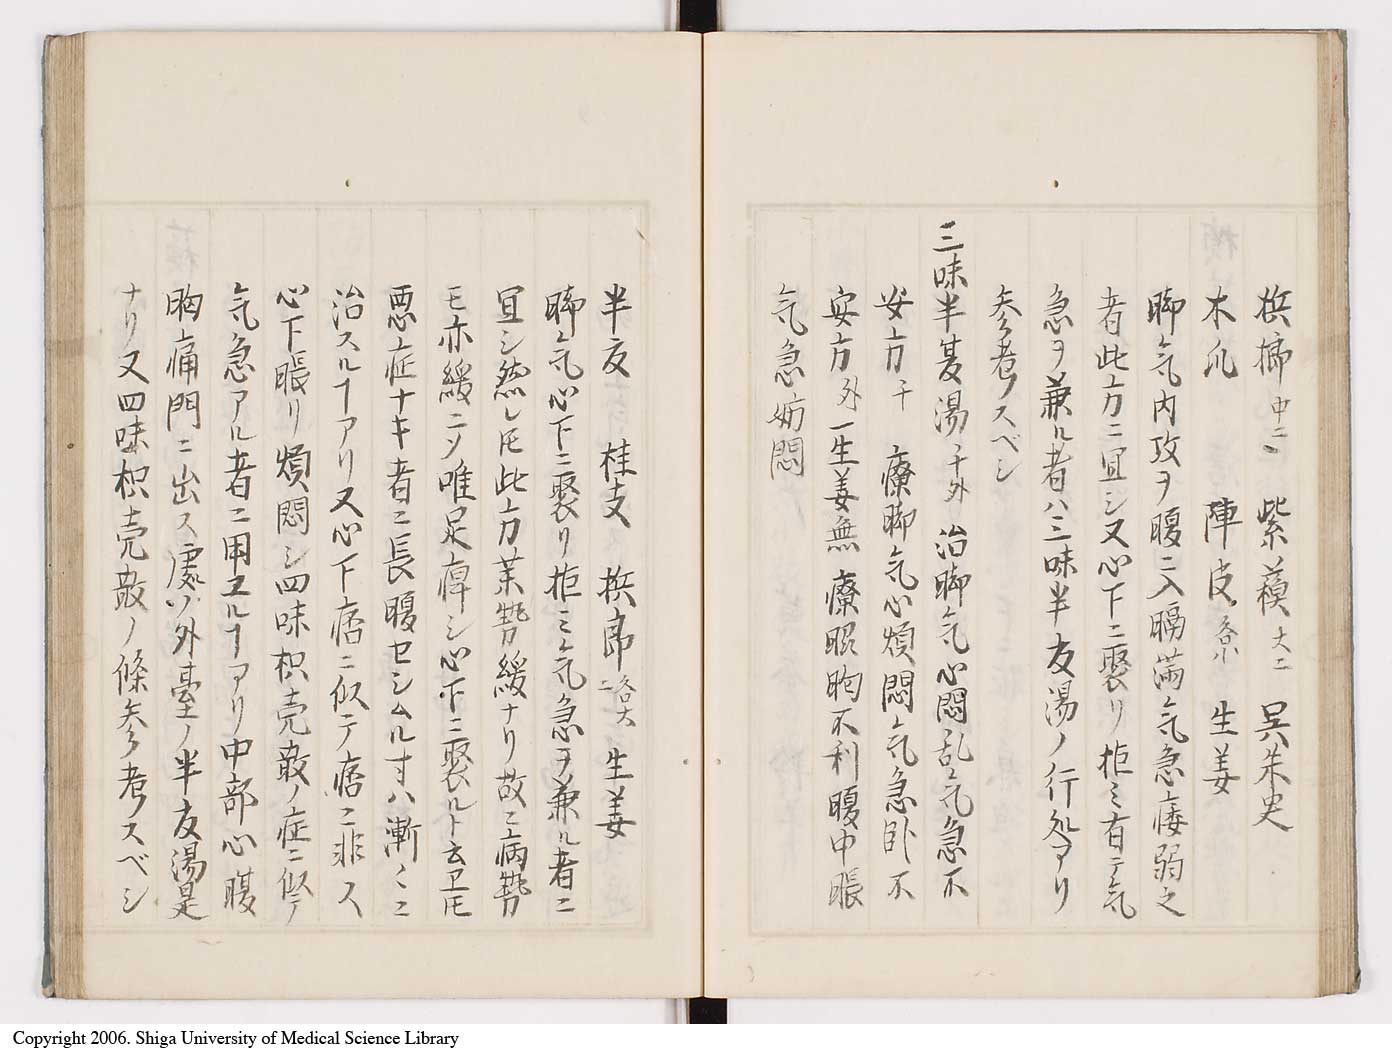 梹榔中二 紫蘇大二 呉茱臾
木瓜 陳皮各小 生姜
脚气内攻ヲ腹ニ入腸満气急痿弱之
者此方ニ宜シ又心下ニ聚リ拒ミ有テ气
急ヲ兼ル者ハ三味半夏湯ノ行処アリ
参考スベシ
三味半夏湯千外 治脚气心悶乱气急不
安方千 療脚气心煩悶气急卧不
安方外一生姜無 療暇胸不利腹中脹
气急妨悶
半夏 桂支 梹郎各大二 生姜
脚气心下ニ聚リ拒ミ气急ヲ兼ル者ニ
宜シ然レ𪜈此方茉勢緩ナリ故ニ病勢
モ亦緩ニメ唯足痺シ心下ニ聚ルト云𪜈
悪症ナキ者ニ長腹セシムル寸ハ漸々ニ
治スルヿアリ又心下痞ニ似テ痞ニ非ス
心下脹リ煩悶シ四味枳壳散ノ症ニ似テ
气急アル者ニ用ユルヿアリ中部心腹
胸痛門ニ出ス處ハ外臺ノ半夏湯是
ナリ又四味枳壳散ノ條参考スベシ
Copyright 2006. Shiga University of Medical Science Library